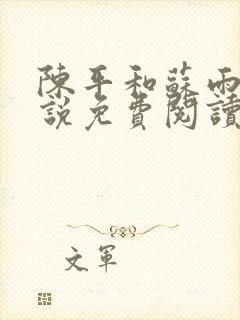 陳平和蘇雨
說免費閱讀
文軍